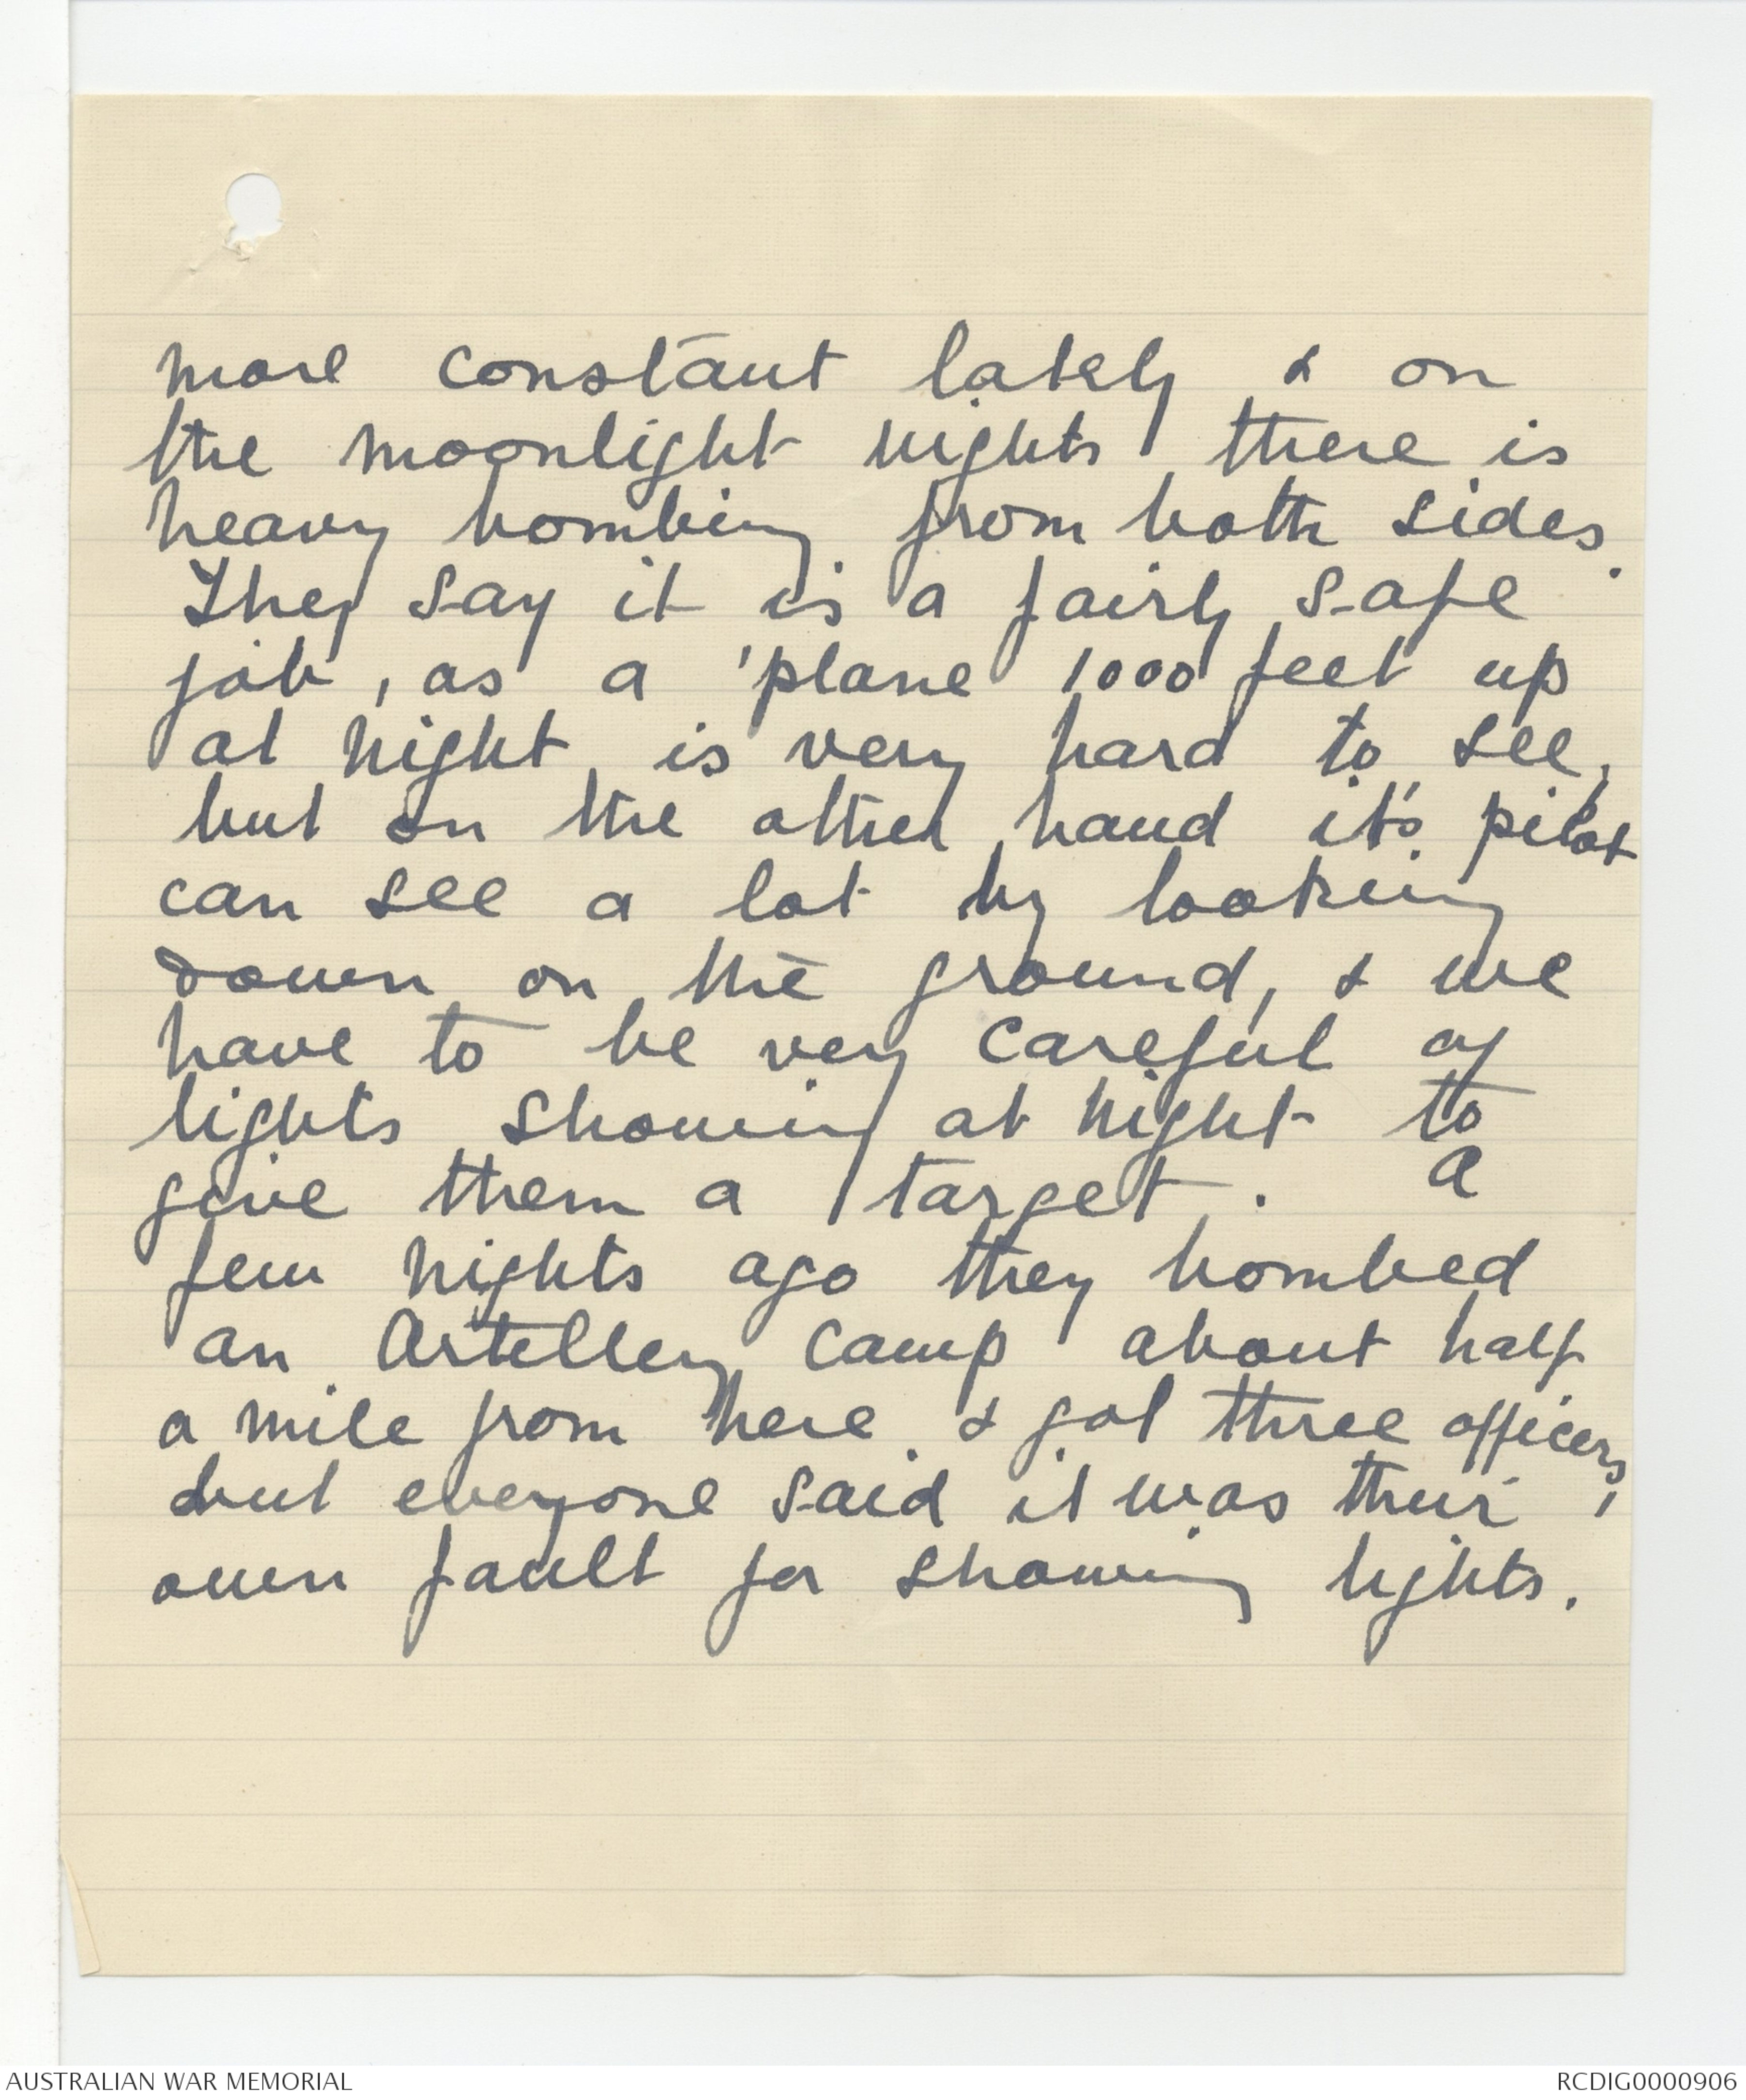 more constant lately & on
the moonlight nights there is
heavy bombing from both sides.
They say it is a fairly safe
job, as a 'plane 1000 feet up
at night is very hard to see,
but on the other hand it's pilot
can see a lot by looking
down on the ground, & we
have to be very careful of
lights showing at night to
give them a target. A
few nights ago they bombed
an Artellery camp about half
a mile from here & got three officers,
but everyone said it was their
own fault for showing lights.
AUSTRALIAN WAR MEMORIAL
RCDIG0000906